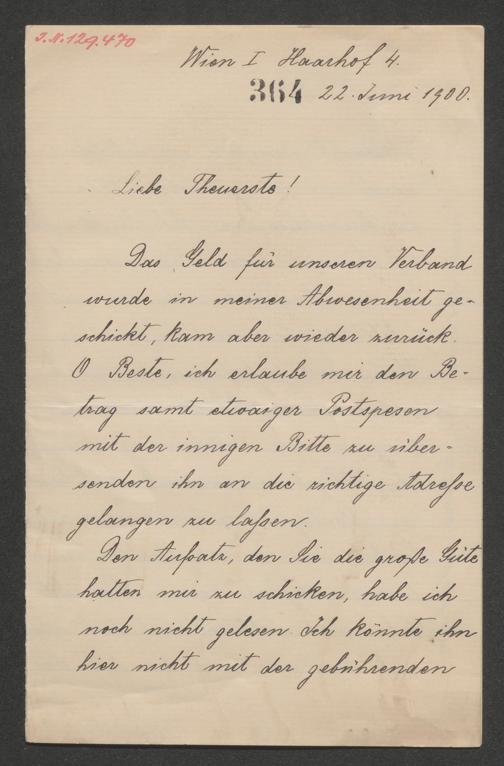 J.N. 129.470
Wien I Haarhof 4.
364 22. Juni 1900.
Liebe Theuerste!
Das Geld für unseren Verband
wurde in meiner Abwesenheit ge-
schickt, kam aber wieder zurück.
O Beste, ich erlaube mir den Be-
trag samt etwaiger Postspesen
mit der innigen Bitte zu über-
senden ihn an die richtige Adresse
gelangen zu lassen.
Den Aufsatz, den Sie die große Güte
hatten mir zu schicken, habe ich
noch nicht gelesen. Ich könnte ihn
hier nicht mit der gebührenden